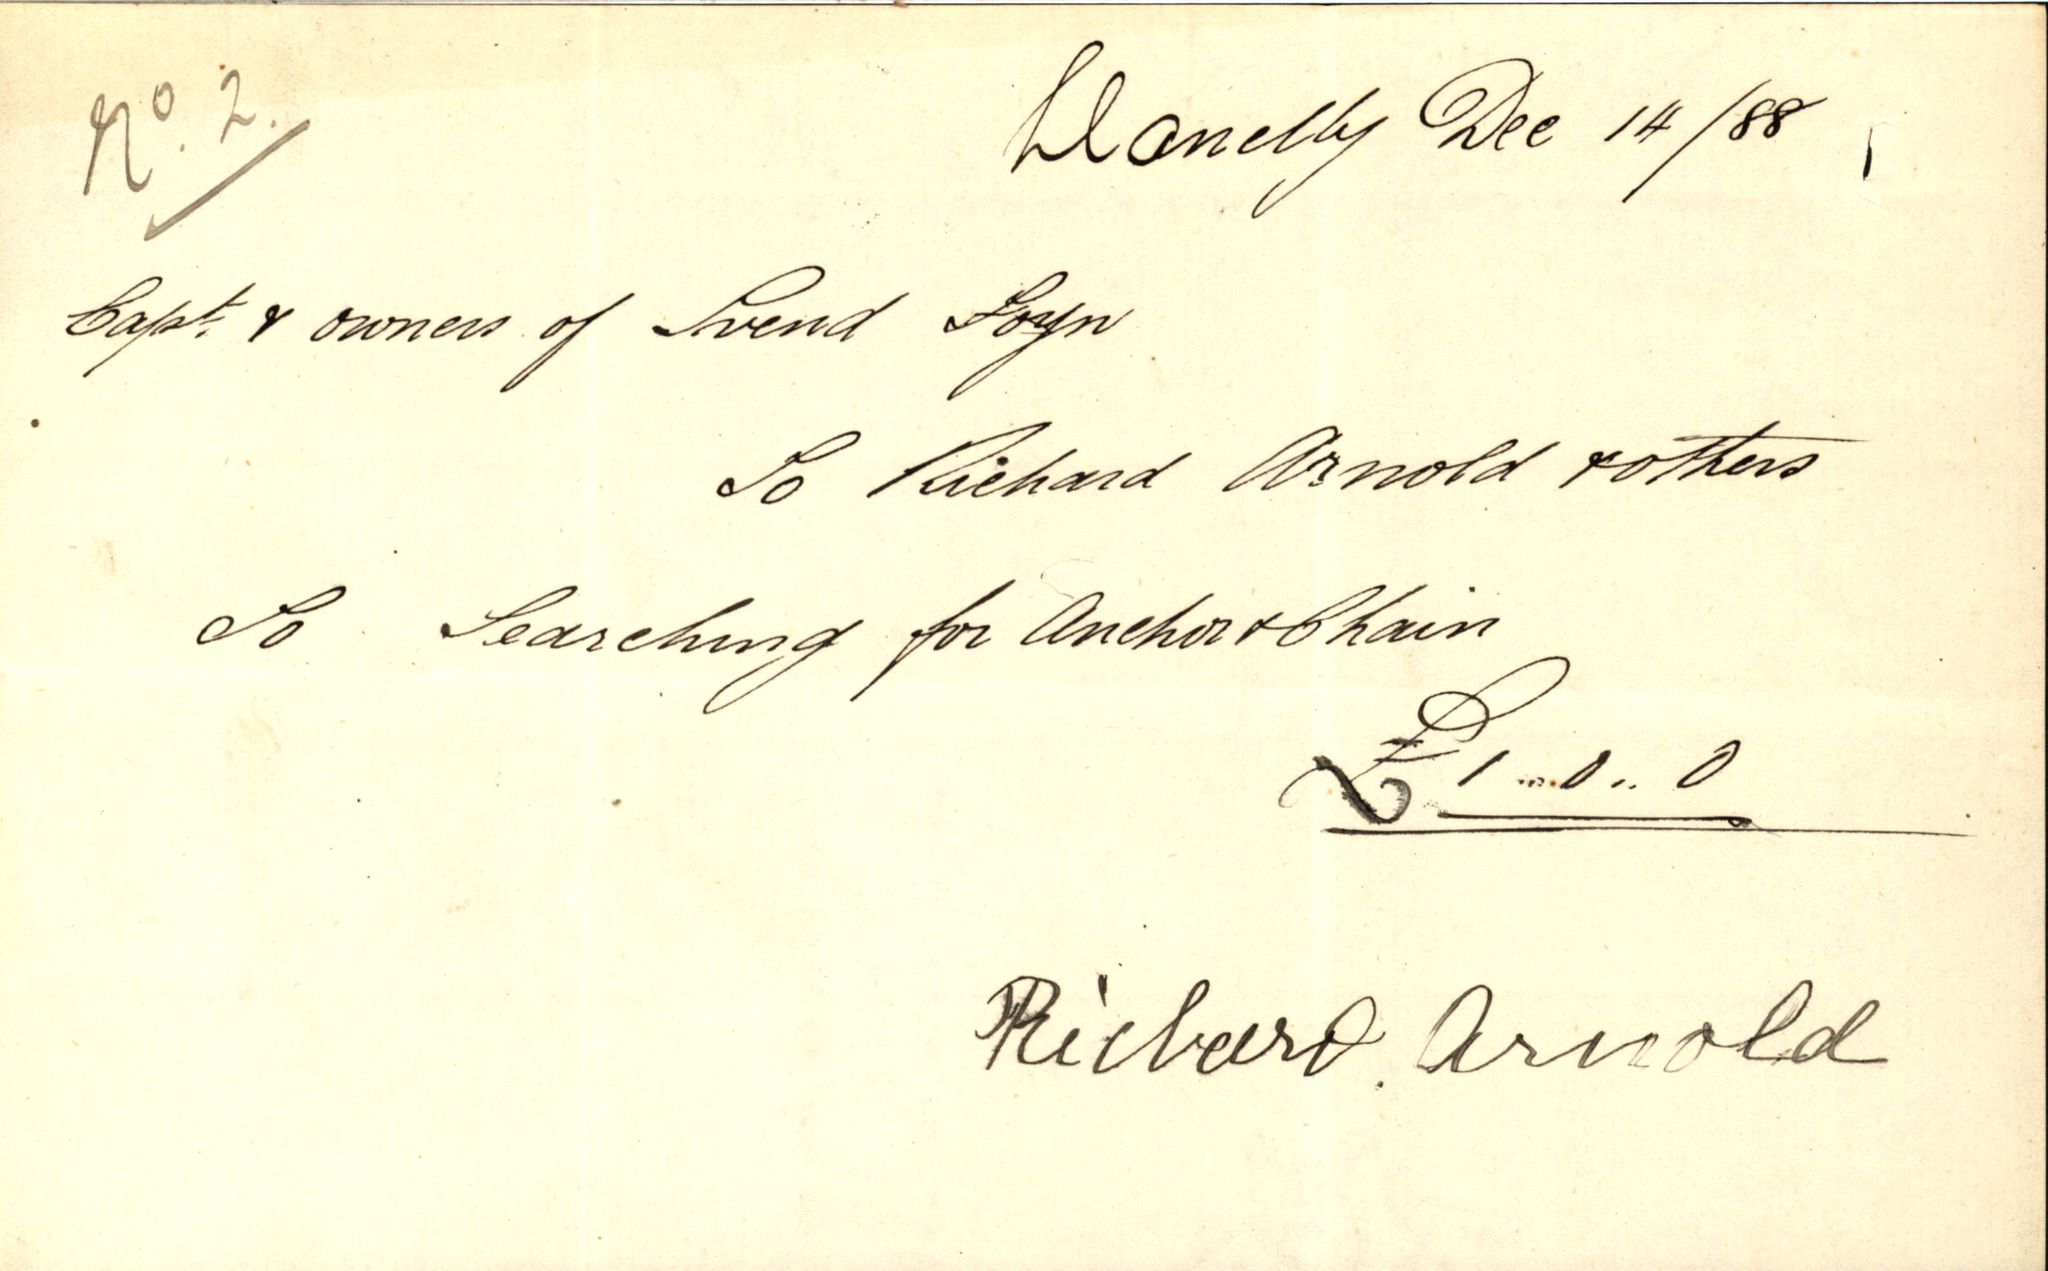 No. 2.
Llanelly Dec 14/88
Capt. & owners of Svend Foyn
To Richard Arnold & others
To Searching for Anchor & Chain
£1..0..0
Richard Arnold